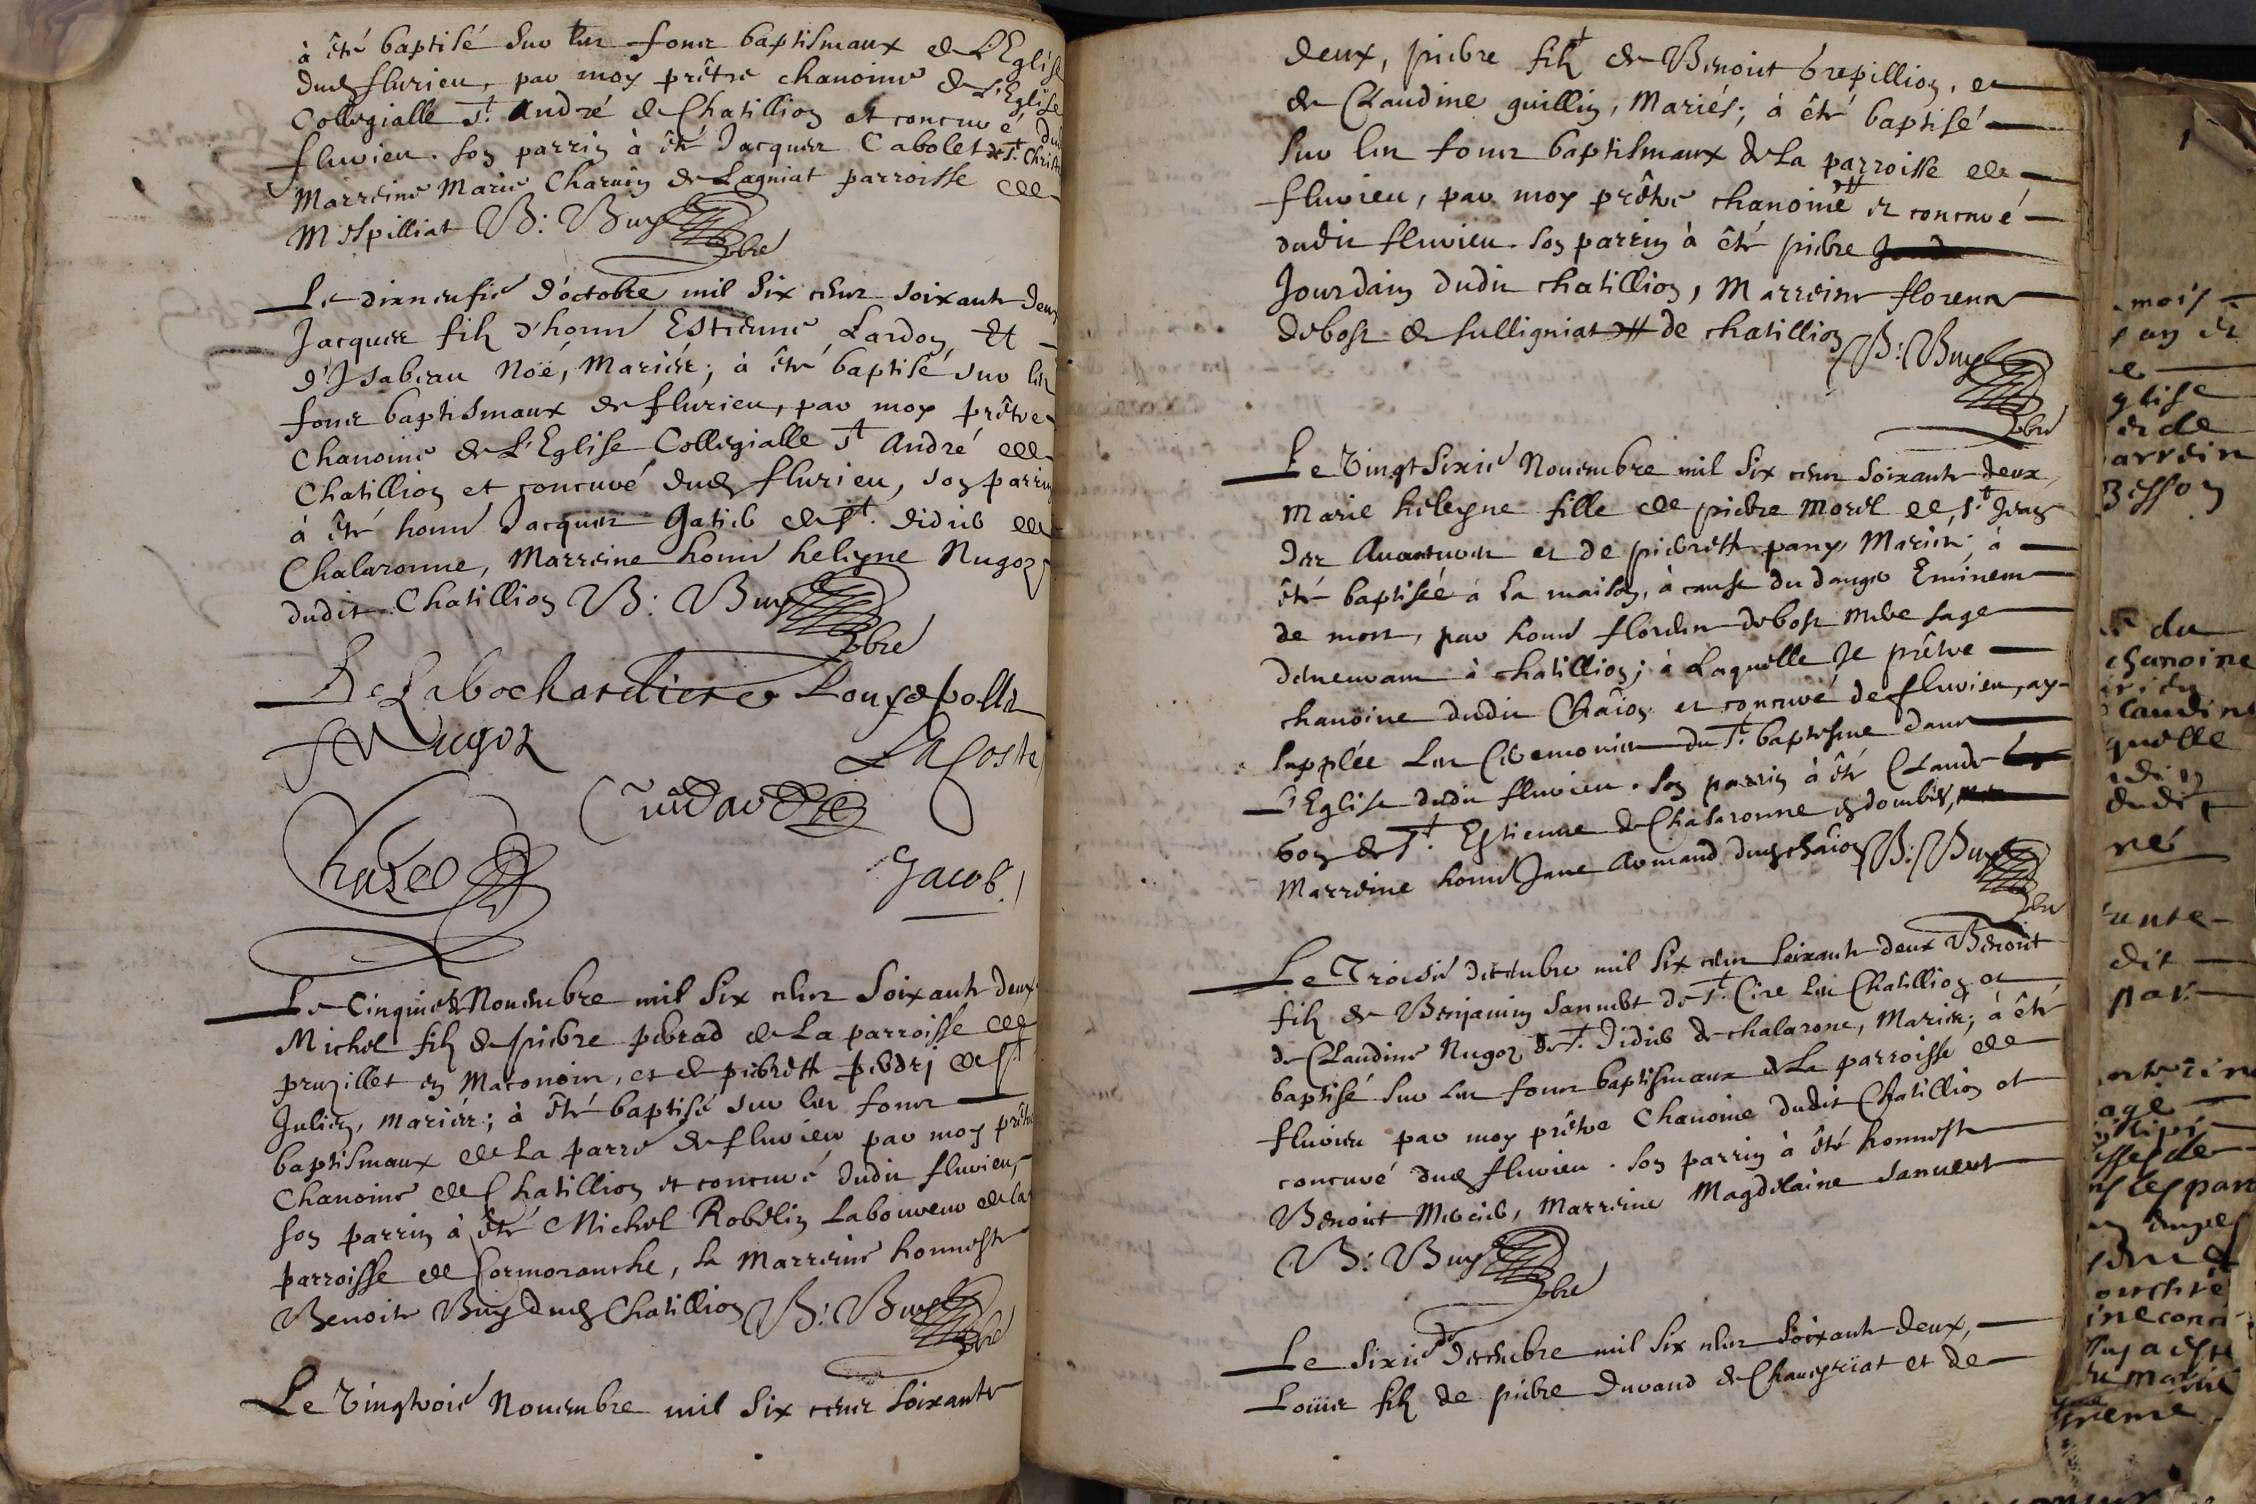 à été baptisé sur les fons baptismaux de L'Eglise
dud flurieu, par moy prêtre chanoine de L'Eglise
Collegialle St. André de Chatillion et concuré dud
flurieu. son parrin à été Jacques Cabolet de St. Christ
Marreine Marie Charvin de Lagniat parroisse de
Mespilliat B: Buy pbre
Le dixneufie d'octobre mil six cens soixante deux
Jacques fils d'honn Estienne Lardon, et
d'Isabeau Noé, Mariés; à été baptisé sur les
fons baptismaux de flurieu, par moy prêtre
Chanoine de L'Eglise Collegialle St André de
Chatillion et concuré dud flurieu, son parrin
à été honn Jacques gatier de St. didier de
Chalaronne, Marreine honn heleyne Nugoz
dudit Chatillion B: Buy pbre
De Labochardiere Louyse polla
Nugoz
Lacoste
Chazel
Jacob.
Le cinquie de Nouembre mil six cens soixante deux
Michel fils de pierre perrad de La parroisse de
pruzillet en Maconois, et de pierrette perdrj de St
Julien, mariés; à été baptisé sur les fons
baptismaux de La parre de flurieu par moy prêtre
Chanoine de Chatillion et concuré dudit flurieu,
son parrin à été Michel Robelin Laboureur de la
parroisse de Cormoranche, sa Marreine honneste
Benoite Buy dud Chatillion B: Buy pbre
Le vingtroie Nouembre mil six cens soixante
deux, pierre fils de Benoit brepillion, et
de Claudine guillin, Mariés; à été baptisé
sur les fons baptismaux de La parroisse de
flurieu, par moy prêtre chanoine et concuré
dudit flurieu. son parrin à été pierre
Jourdain dudit chatillion, Marreine florence
debost de sulligniat de chatillion B: Buy
pbre
Le vingt sixie Nouembre mil six cens soixante deux,
Marie heleyne fille de pierre Morel de St Jean
des Auantures et de pierrette pany, Mariés; à
été baptisée à la maison, à cause du danger Eminent
de mort, par honn florence debost mere sage
demeurant à chatillion; à Laquelle Je prêtre
chanoine dudit Chãion et concuré de flurieu, ay
supplée Les Ceremonies du St. baptesme dans
L'Eglise dudit flurieu. son parrin à été Claude
bon de St. Estienne de Chalaronne en dombes,
Marreine honn Jane Armand dud chãion B: Buy
pbre
Le Troisie decembre mil six cens soixante deux Benoit
fils de Benjamin sannert de St. Cire les Chatillion et
de Claudine Nugoz de St. Didier de chalarone, Mariés; à été
baptisé sur les fons baptismaux de La parroisse de
flurieu par moy prêtre Chanoine dudit Chatillion et
concuré dud flurieu. son parrin à été honneste
Benoit Mercier, Marreine Magdelaine sanuert
B: Buy pbre
Le sixie de Decembre mil six cens soixante deux,
Loüis fils de pierre durand de Chaueyriat et de
mois
glise
et de
arrein
Besson
du
chanoine
laudine
quelle
dudit
né
dit
par